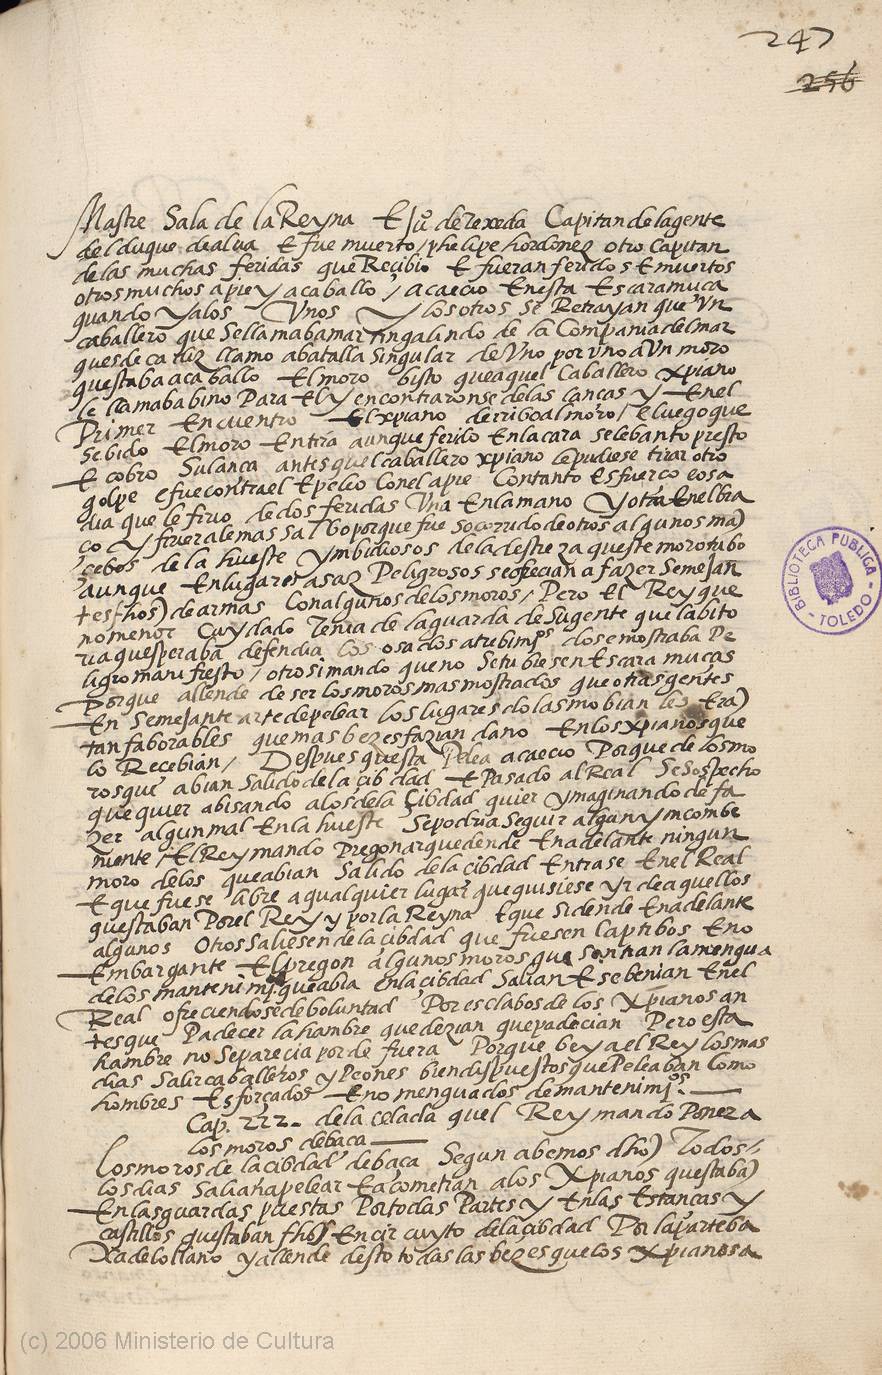 247
256
Mastre Sala de la Reyna E Ju.o de Texeda Capitan de la gente
del duque de alua E fue muerto / phelipe hordonez otro Capitan
de las muchas feridas que Recibio E fueran feridos E muertos
otros muchos a pie y a caballo / acaecio En esta Escaramuca
quando ya los Vnos y los otros se Retrayan que Vn
caballero que Se llamaba martin galindo de la Compania del mar
ques de cadiz llamo a batalla Singular de Vno por Vno a Vn moro
questaba a caballo El moro bisto que aquel Caballero xpiano
le llamaba bino Para El y encontraronse de las lancas y En el
Primer Encuentro El xpiano derribo al moro / e luego que
se bido El moro En tria aunque ferido En la cara se lebanto presto
E cobro Su lanca antes quel caballero xpiano le pudiese tirar otro
golpe e fue contra el E peleo Con el a pie Con tanto Esfuerco E osa
dia que le firio de dos feridas Vna En la mano y otra En el bra
co y friera le mas sal bo porque fue Socorrido de otros algunos mā
cebos de la hueste ymbidiosos de la destreza queste moro tubo
aunque En lugares asaz Peligrosos se ofrecian a fazer Semejan
tes fhos de armas Con algunos de los moros / Pero El Rey que
no menor Cuydado Tenia de la guarda de Su gente que la bito
ria quesperaba defendia los osados atrebimos dose mostraba Pe
ligro manifiesto / otrosi mando que no Se tubiesen Escaramucas
Porque allende de ser los moros mas mostrados que otras gentes
En semejante arte de pelear los lugares do las mobian les Erā
tan faborables que mas bezes fazian dano En los xpianos que
lo Recebian / Despues questa Pelea acaecio Porque de los mo
ros que abian Salido de la cibdad E Pasado al Real Se Sospecho
que quier abisando a los de la Cibdad quier ymaginando de fa
zer algun mal En la hueste Se podria Seguir algun yncombe
niente / El Rey mando Pregonar que dende En adelante ningun
moro de los que abian Salido de la cibdad Entrase En el Real
E que fuese libre a qualquier lugar que quisiese yr de aquellos
questaban Por el Rey y por la Reyna E que Si dende En adelante
algunos Otros saliesen de la cibdad que fuesen Captibos E no
Embargante El pregon algunos moros que sentian la mengua
de los mantenimios que abia en la cibdad Salian E se benian En el
Real ofreciendose de boluntad Por esclabos de los xpianos an
tes que Padecer la hambre que dezian que padecian Pero esta
hambre no Se parecia por de fuera Porque beya el Rey los mas
dias Salir caballeros y Peones bien dispuestos que Peleaban Como
hombres Esforcados E no menguados de mantenimios
Cap. 222. de la celada quel Rey mando Poner a
los moros de baca
Los moros de la cibdad de baca Segun abemos dho Todos
los dias Saliana pelear E acometian a los xpianos questabā
En las guardas puestas Por todas Partes y En las Estancas y
castillos questaban fhos En circuyto de la cibdad Por la parte ba
xa de lo llano y allende desto todas las bezes que los xpianos a
BIBLIOTECA PUBLICA - TOLEDO -
(c) 2006 Ministerio de Cultura